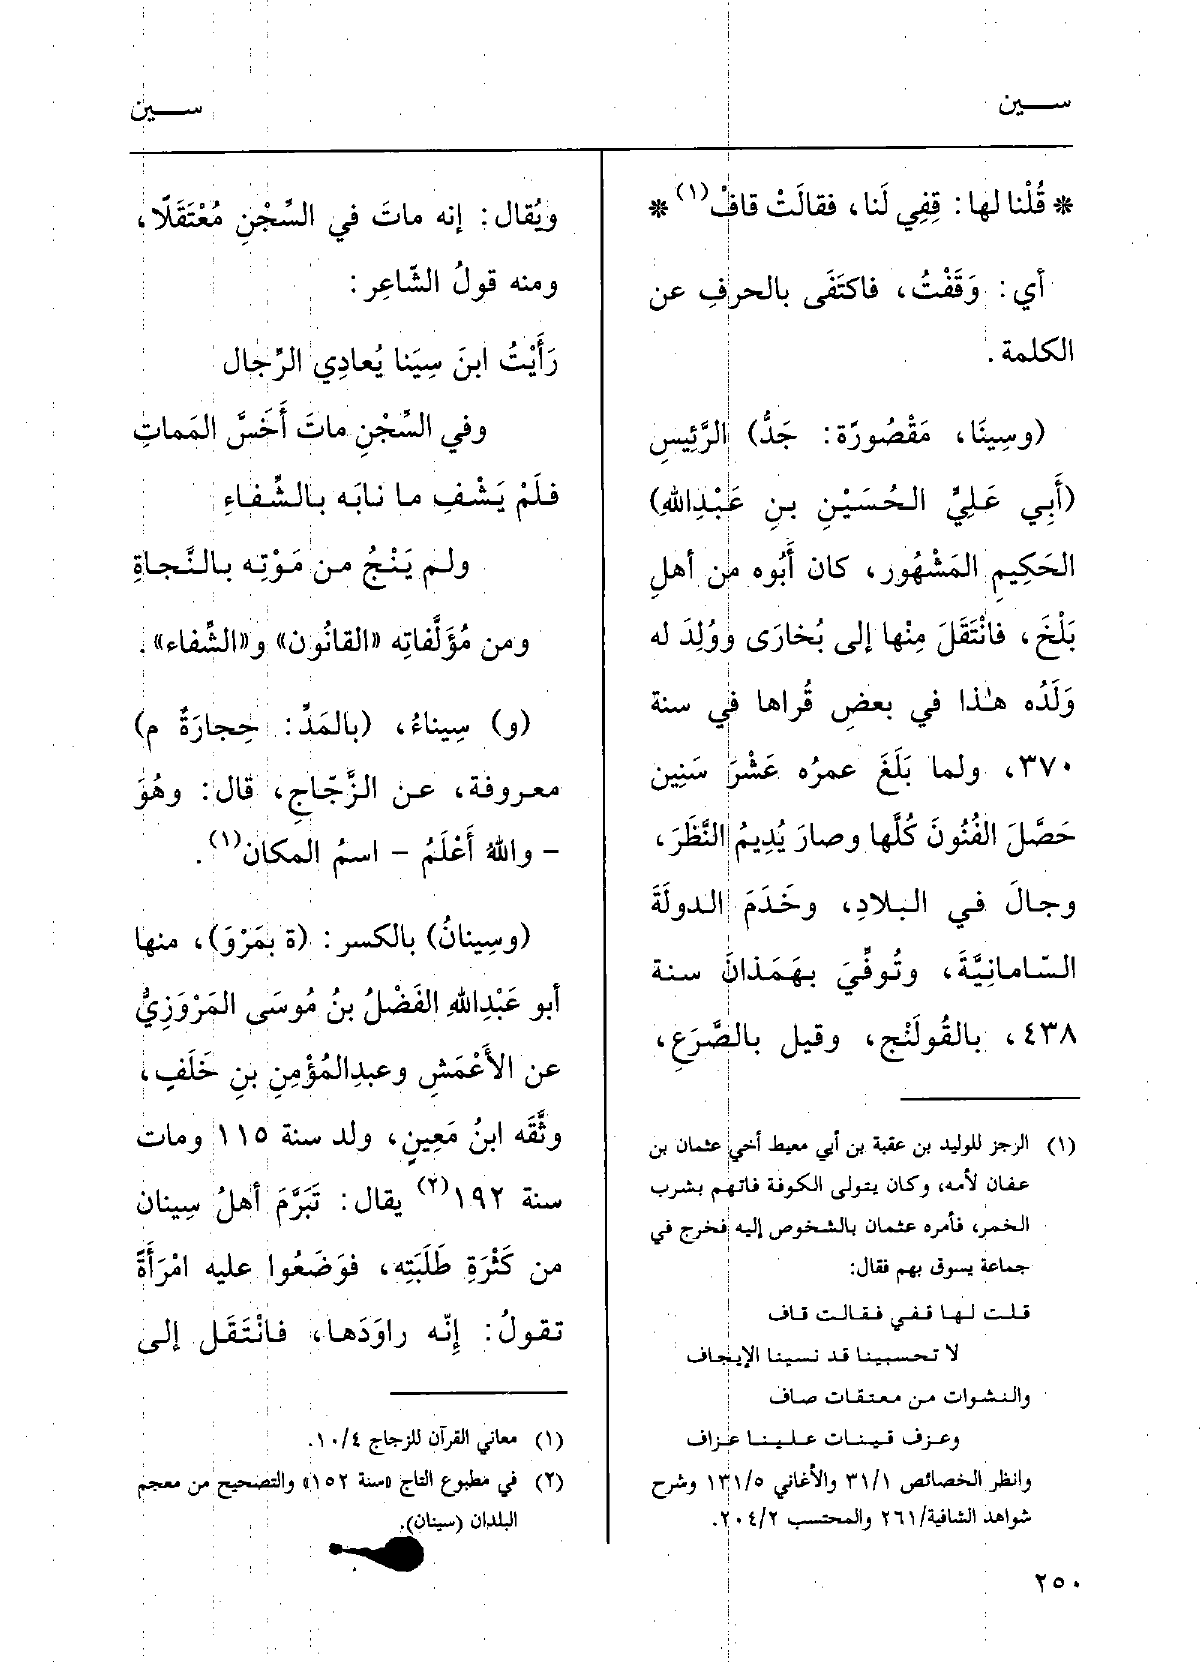 سين
سين
* قُلْنا لها: قِفِي لَنا، فقالَتْ قافْ(١) *
أي: وَقَفْتُ، فاكتَفَى بالحرفِ عن
الكلمة.
(وسِينَا، مَقْصُورَة: جَدُّ) الرَّئِيسِ
(أَبِي عَلِيٍّ الحُسَيْنِ بنِ عَبْدِاللهِ)
الحَكِيمِ المَشْهُور، كان أَبُوه من أهلِ
بَلْخَ، فانْتَقَلَ مِنْها إلى بُخارَى ووُلِدَ له
وَلَدُه هٰذا في بعضِ قُراها في سنة
٣٧٠، ولما بَلَغَ عمرُه عَشْرَ سَنِين
حَصَّلَ الفُنُونَ كُلَّها وصارَ يُدِيمُ النَّظَرَ،
وجالَ في البلادِ، وخَدَمَ الدولَةَ
السّامانِيَّةَ، وتُوفِّيَ بهَمَذانَ سنة
٤٣٨، بالقُولَنْج، وقيل بالصَّرَعِ،
(١) الرجز للوليد بن عقبة بن أبي معيط أخي عثمان بن
عفان لأمه، وكان يتولى الكوفة فاتهم بشرب
الخمر، فأمره عثمان بالشخوص إليه فخرج في
جماعة يسوق بهم فقال:
قلت لها قفي فقالت قاف
لا تحسبينا قد نسينا الإيجاف
والنشوات من معتقات صاف
وعزف قينات علينا عزاف
وانظر الخصائص ٣١/١ والأغاني ١٣١/٥ وشرح
شواهد الشافية/٢٦١ والمحتسب ٢٠٤/٢.
ويُقال: إنه ماتَ في السِّجْنِ مُعْتَقَلًا،
ومنه قولُ الشّاعِر:
رَأَيْتُ ابنَ سِيَنا يُعادِي الرِّجال
وفي السِّجْنِ ماتَ أَخَسَّ المَماتِ
فلَمْ يَشْفِ ما نابَه بالشِّفاءِ
ولم يَنْجُ من مَوْتِه بالنَّجاةِ
ومن مُؤَلَّفاتِه «القانُون» و«الشِّفاء».
(و) سِيناءُ، (بالمَدِّ: حِجارَةٌ م)
معروفة، عن الزَّجّاجِ، قال: وهُوَ
- واللهُ أَعْلَمُ - اسمُ المكان(١).
(وسِينانُ) بالكسر: (ة بمَرْوَ)، منها
أبو عَبْدِاللهِ الفَضْلُ بنُ مُوسَى المَرْوَزِيُّ
عن الأَعْمَشِ وعبدِالمُؤْمِنِ بنِ خَلَفٍ،
وثَّقَه ابنُ مَعِينٍ، ولد سنة ١١٥ ومات
سنة ١٩٢(٢) يقال: تَبَرَّمَ أهلُ سِينان
من كَثْرَةِ طَلَبَتِه، فوَضَعُوا عليه امْرَأَةً
تقولُ: إنّه راوَدَها، فانْتَقَل إلى
(١) معاني القرآن للزجاج ١٠/٤.
(٢) في مطبوع التاج «سنة ١٥٢» والتصحيح من معجم
البلدان (سينان).
٢٥٠